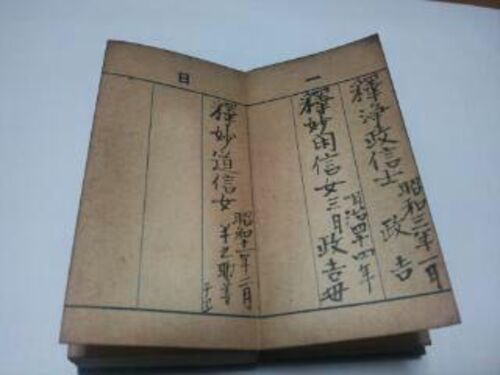 一
日
釋浄政信士
昭和三年一月
政吉
釋妙 信女三月政吉母
明治四十四年
釋妙道信女
昭和十一年二月